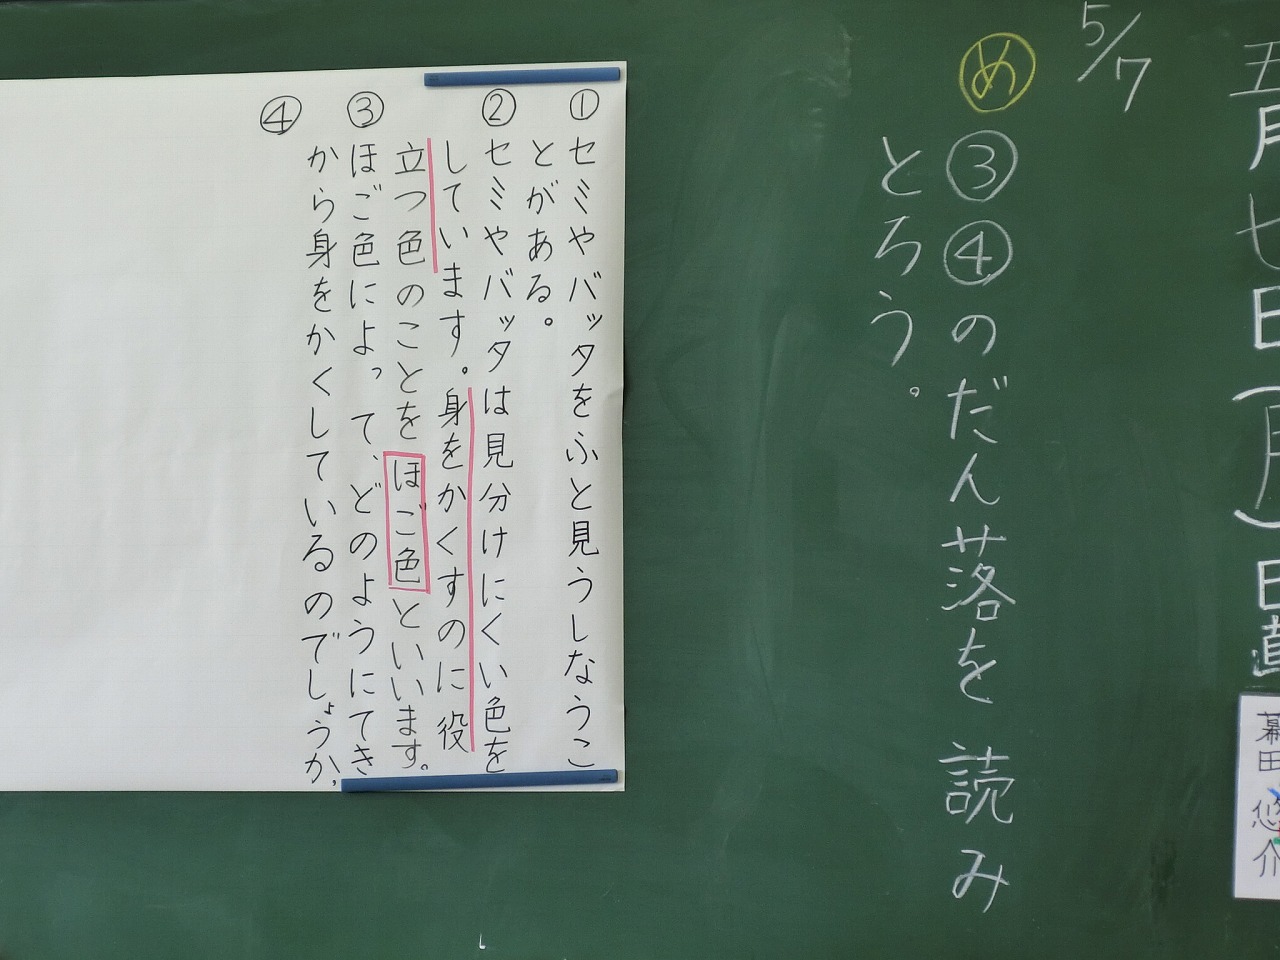 五月七日(月)日直
幕田悠介
5/7
め ③④のだん落を読み
とろう。
① セミやバッタをふと見うしなうこ
とがある。
② セミやバッタは見分けにくい色を
しています。身をかくすのに役
立つ色のことをほご色といいます。
③ ほご色によって、どのようにてき
から身をかくしているのでしょうか。
④